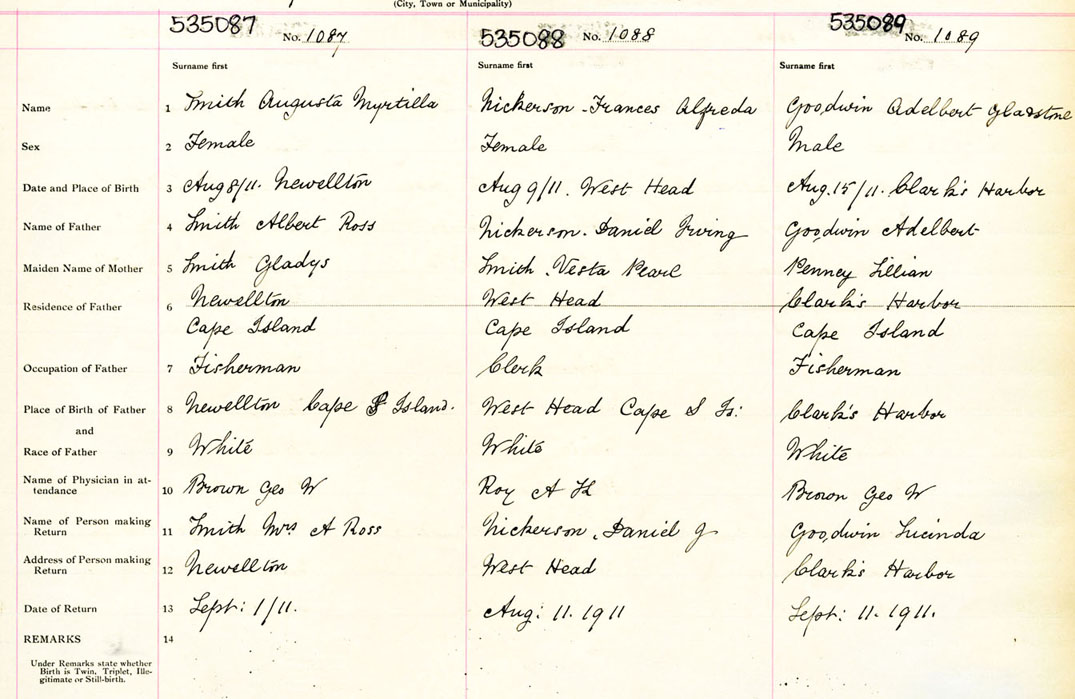 (City, Town or Municipality)
535087 No. 1087 535088 No. 1088 535089 No. 1089
Surname first Surname first Surname first
Name 1 Smith Augusta Myrtilla Nickerson Frances Alfreda Goodwin Adelbert Gladstone
Sex 2 Female Female Male
Date and Place of Birth 3 Aug 8/11. Newellton Aug 9/11. West Head Aug. 15/11. Clark's Harbor
Name of Father 4 Smith Albert Ross Nickerson. Daniel Irving Goodwin Adelbert
Maiden Name of Mother 5 Smith Gladys Smith. Vesta Pearl Penney Lillian
Residence of Father 6 Newellton West Head Clark's Harbor
Cape Island Cape Island Cape Island
Occupation of Father 7 Fisherman Clerk Fisherman
Place of Birth of Father 8 Newellton Cape S Island. West Head Cape S Is: Clark's Harbor
and
Race of Father 9 White White White
Name of Physician in at-
tendance 10 Brown Geo W Roy A Brown Geo W
Name of Person making
Return 11 Smith Mrs. A Ross Nickerson, Daniel J Goodwin Lucinda
Address of Person making
Return 12 Newellton West Head Clark's Harbor
Date of Return 13 Sept: 1/11. Aug: 11. 1911 Sept: 11. 1911.
REMARKS 14
Under Remarks state whether
Birth is Twin, Triplet, Ille-
gitimate or Still-birth.